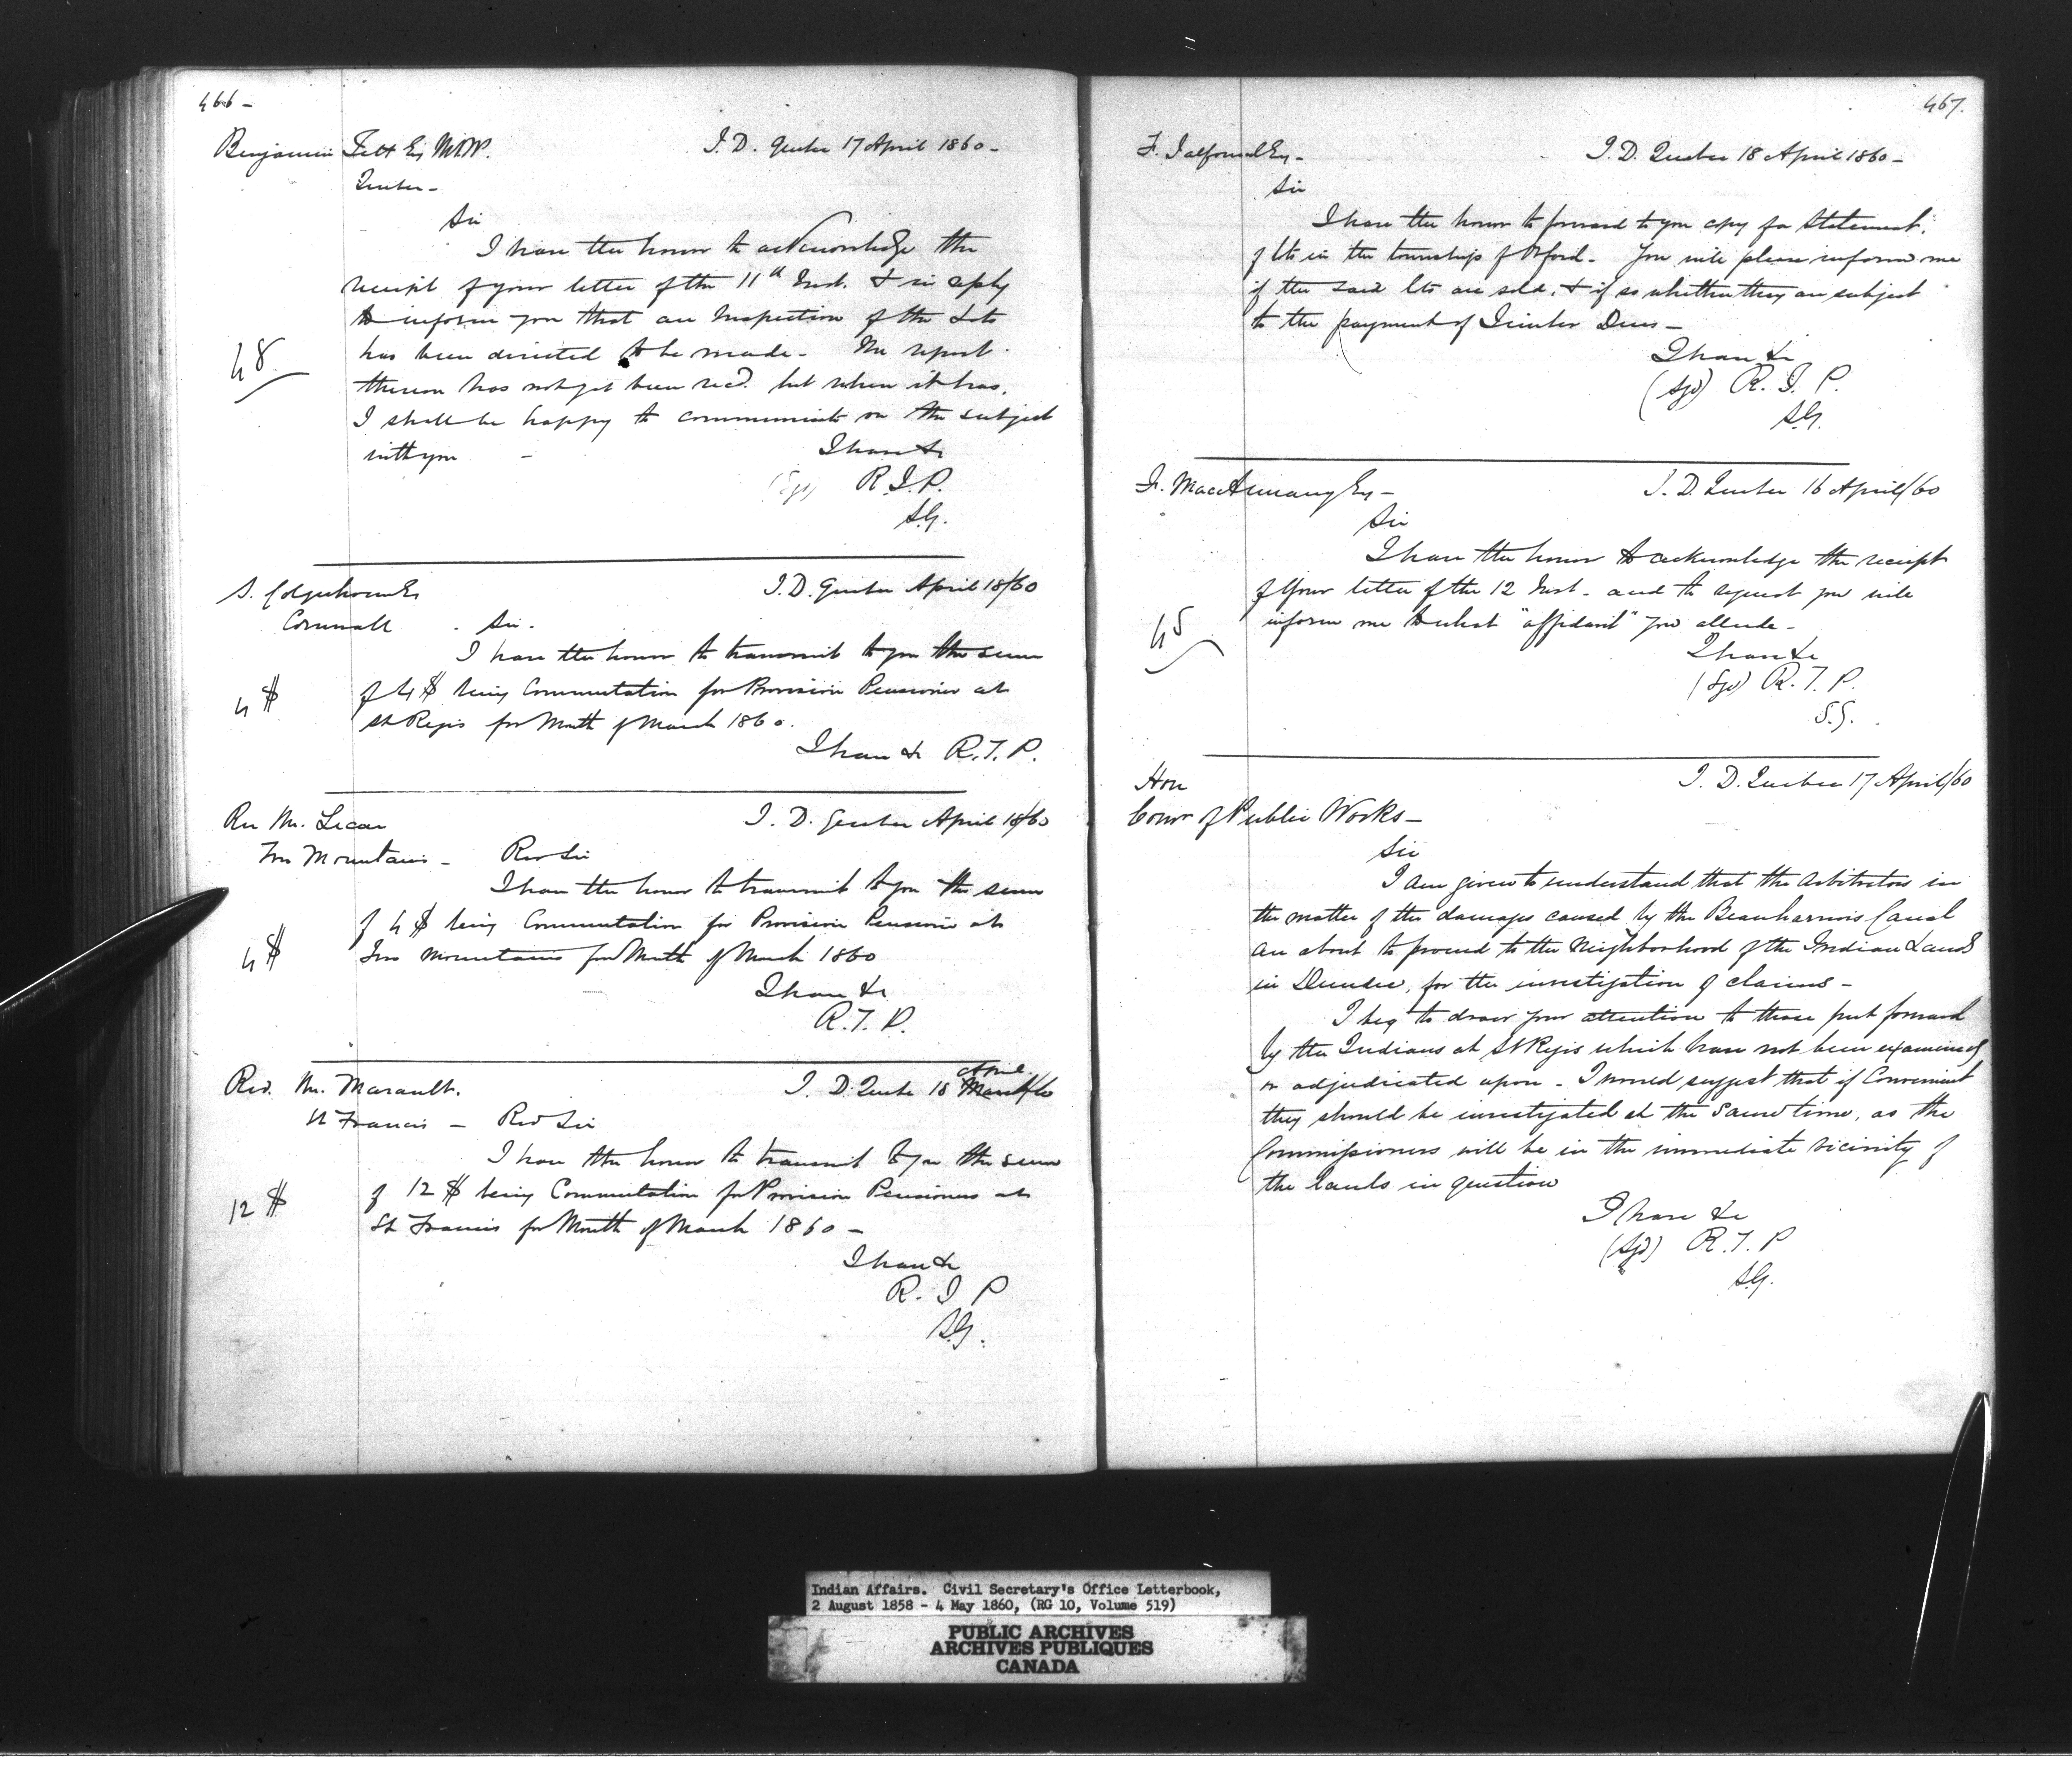 466 -
Benjamin Tett Esq M.P.P. I. D. Quebec 17 April 1860 -
Quebec -
Sir
I have the honor to acknowledge the
receipt of your letter of the 11th Inst. & in reply
to inform you that an Inspection of the Lots
has been directed to be made - The report
48
thereon has not yet been recd. but when it has,
I shall be happy to communicate on the subject
with you - I have &c
(Sgd) R. T. P.
S.G.
S. Colquhoun Esq I. D. Quebec April 18/60
Cornwall Sir -
I have the honor to transmit to you the sum
4 $ of 4 $ being Commutation for Provision Pensioner at
St Regis for Month of March 1860.
I have &c R. T. P.
Rev Mr. I. D. Quebec April 18/60
Two Mountains - Rev Sir
I have the honor to transmit to you the sum
of 4 $ being Commutation for Provision Pensioner at
4 $ Two Mountains for Month of March 1860
I have &c
R. T. P.
April
Rev. Mr. Marault. I. D. Quebec 18 March/60
St Francis - Rev Sir
I have the honor to transmit to you the sum
12 $ of 12 $ being Commutation for Provision Pensioners at
St Francis for Month of March 1860 -
I have &c
R. T. P
S.G.
467.
F. Talfourd Esq - I. D. Quebec 18 April 1860 -
Sir
I have the honor to forward to you copy for Statement,
of lts in the township of Orford - You will please inform me
if the said lts are sold, & if so whether they are subject
to the payment of Timber Dues -
I have &c
(Sgd) R. T. P.
S.G.
Esq - I. D. Quebec 16 April/60
Sir
I have the honor to acknowledge the receipt
of Your letter of the 12 Inst - and to request you will
45 inform me to what "affidavit" you allude -
I have &c
(Sgd) R. T. P.
S.G.
Hon I. D. Quebec 17 April/60
Comr of Public Works -
Sir
I am given to understand that the Arbitrators in
the matter of the damages caused by the Beauharnois Canal
are about to proceed to the Neighborhood of the Indian Lands
in Dundee, for the investigation of claims -
I beg to draw your attention to those put forward
by the Indians at St Regis which have not been examined
or adjudicated upon - I would suggest that if Convenient
they should be investigated at the same time, as the
Commissioners will be in the immediate vicinity of
the lands in question
I have &c
(Sgd) R. T. P
S.G.
Indian Affairs. Civil Secretary's Office Letterbook,
2 August 1858 - 4 May 1860, (RG 10, Volume 519)
PUBLIC ARCHIVES
ARCHIVES PUBLIQUES
CANADA